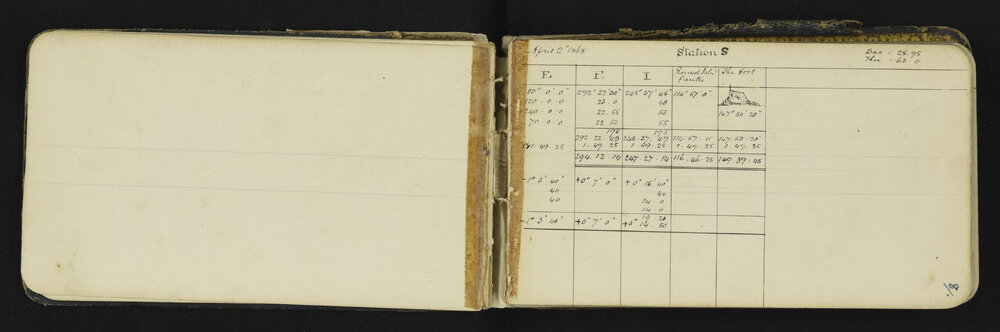 April 2nd 1868 Station S Bar - 28.95
Ther - 63.0
E F I Round The Fort
60° 0' 0" 292° 22' 30" 245° 37' 45" 114° 57' 0"
120.0.0 23.0 40
240.0.0 22.55 55 147° 50' 20"
70.0.0 22.50 55
196 195
292.22.49 245.37.49 114.57.0 147.50.20
181.49.25 1.49.25 1.49.25 1.49.25 1.49.25
294.12.14 247.27.14 116.46.25 149.39.45
-1° 3' 40" +0° 7' 0" +0° 15' 40"
40 40
40 14.0
14.0
19.20
-1° 3' 40" +0° 7' 0" +0° 14.50
18